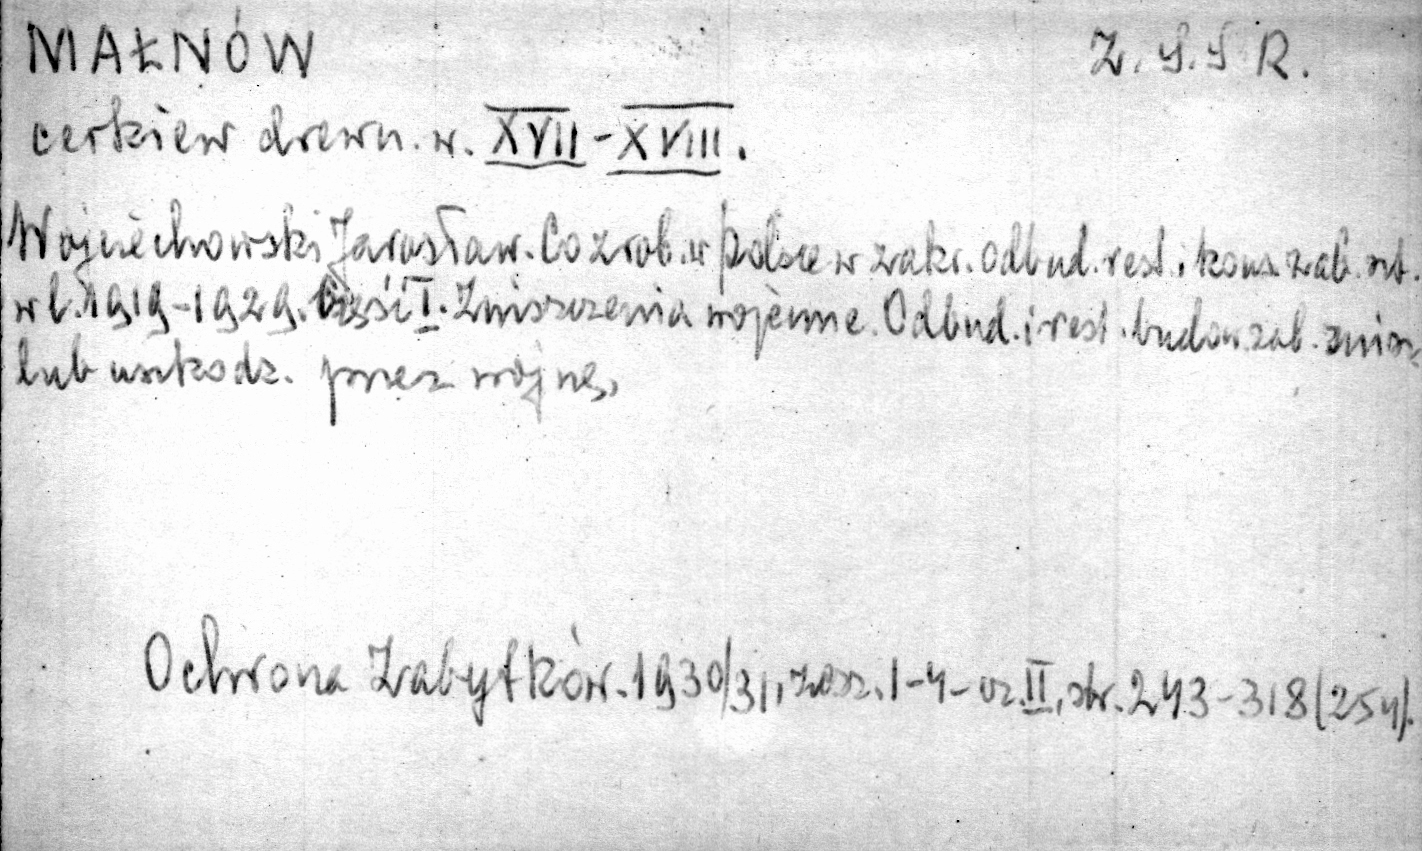 MAŁNÓW Z.S.S R.
cerkiew drewn. w. XVII - XVIII.
Wojciechowski Jarosław. Co zrob. w Polsce w zakr. odbud. rest. i kons. zab. szt.
w l. 1919-1929. Część I. Zniszczenia wojenne. Odbud. i rest. budow. zab. znisz.
lub uszkodz. przez wojnę,
Ochrona Zabytków. 1930/31, zesz. 1-4- cz. II, str. 243-318 (254).